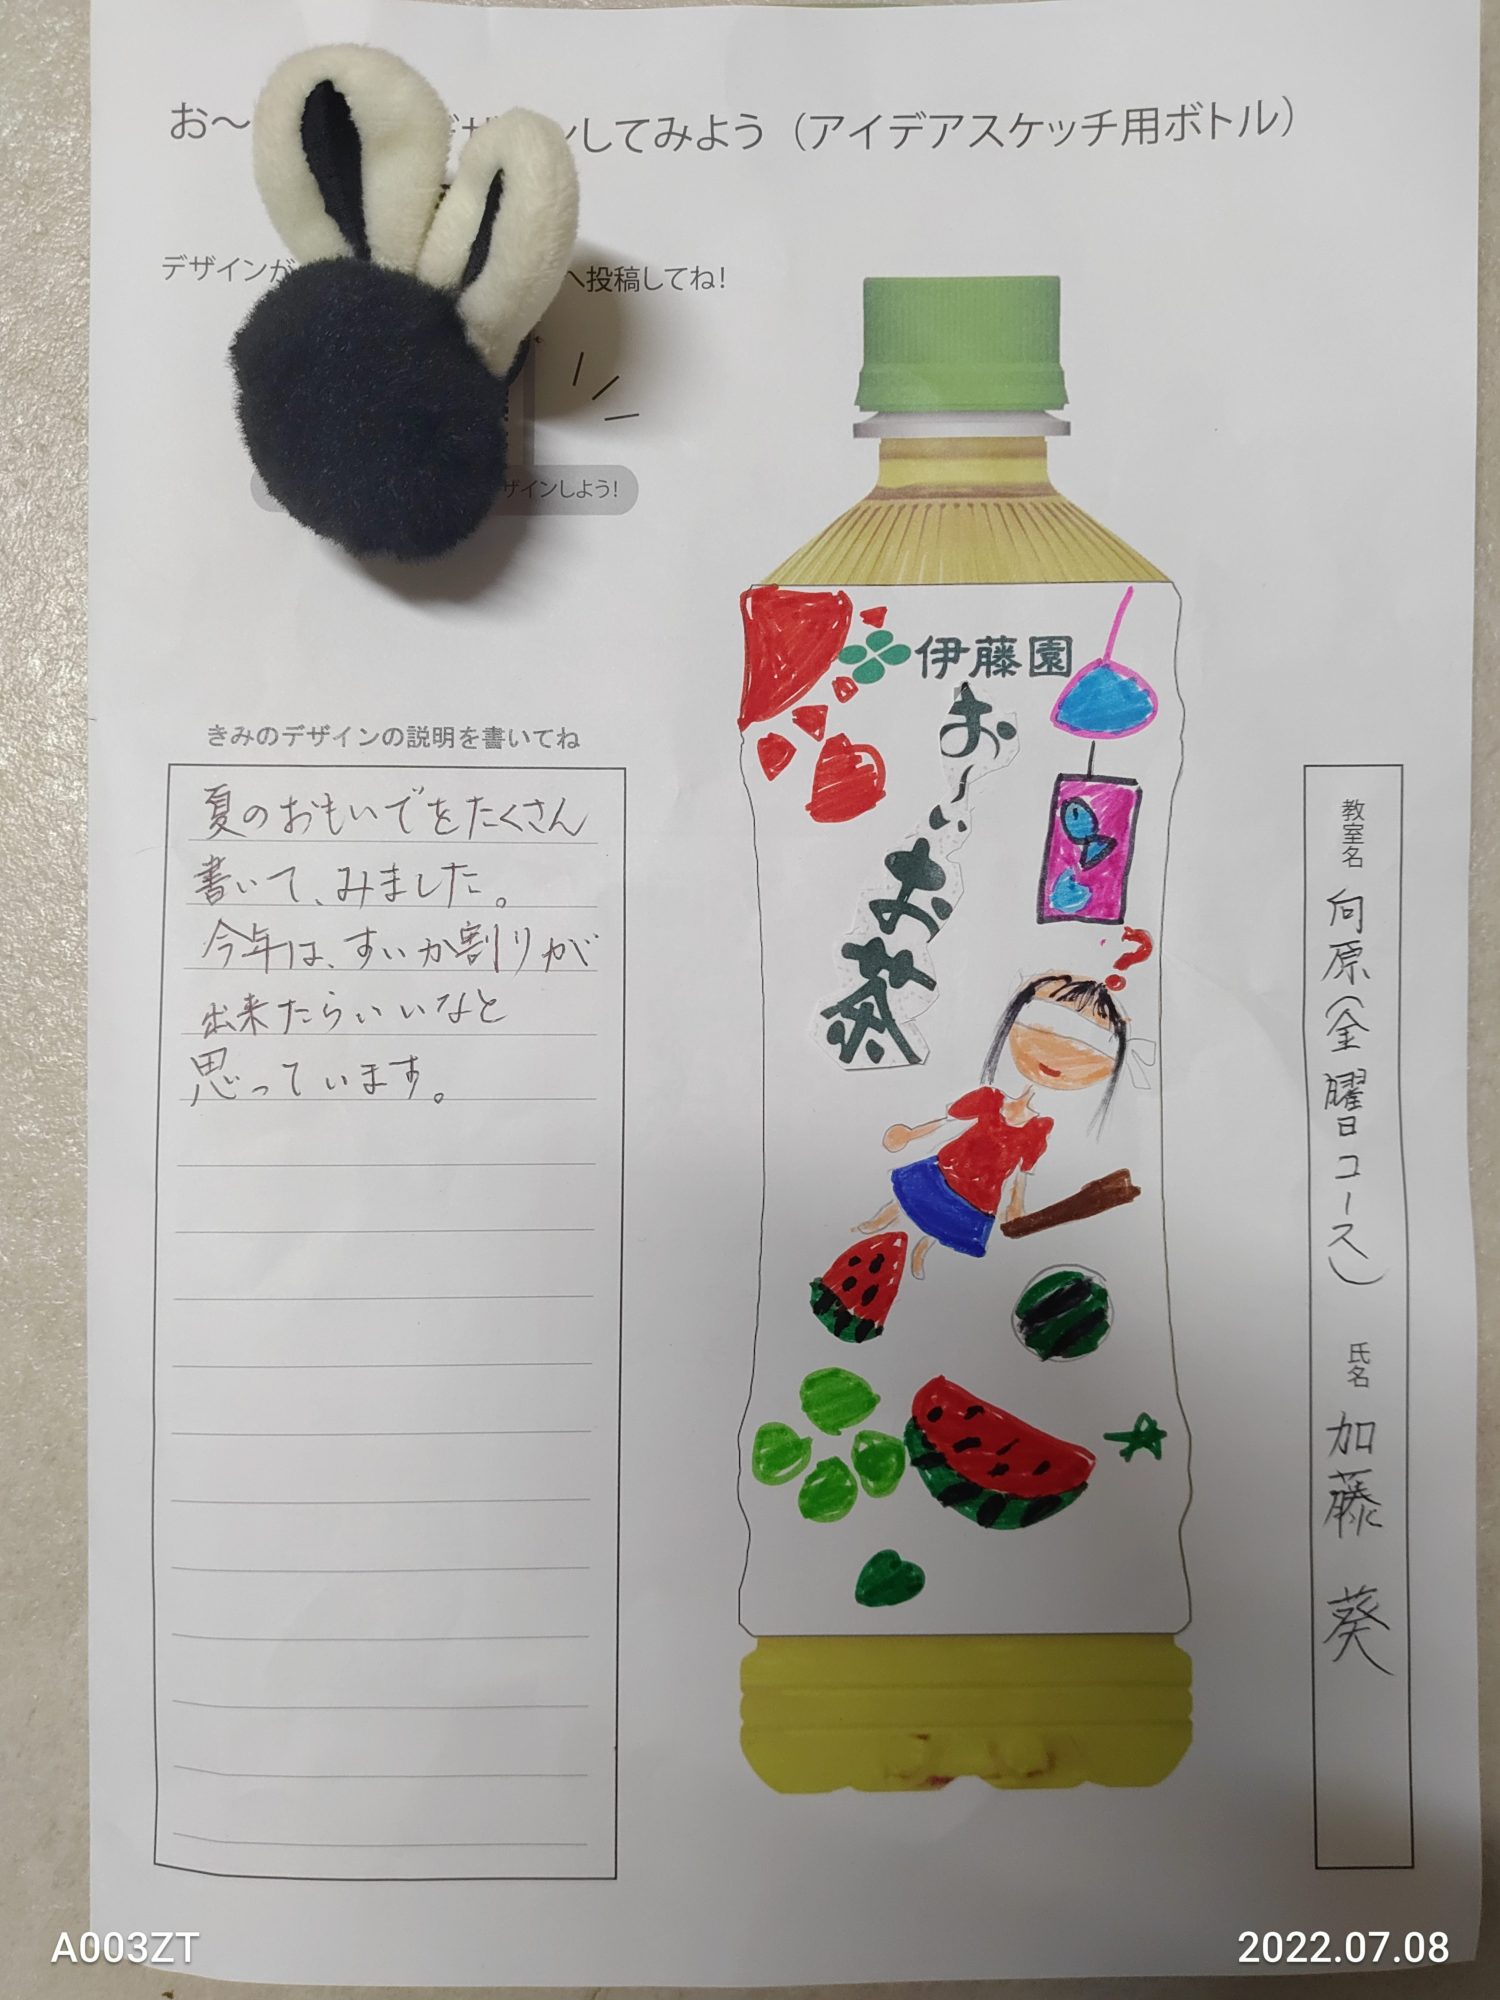 お〜
デザインしてみよう（アイデアスケッチ用ボトル）
デザインが
へ投稿してね！
ザインしよう！
伊藤園
お〜いお茶
?
きみのデザインの説明を書いてね
夏のおもいでをたくさん
書いて、みました。
今年は、すいか割りが
出来たらいいなと
思っています。
教室名 向原(金曜日コース)
氏名 加藤 葵
A003ZT
2022.07.08